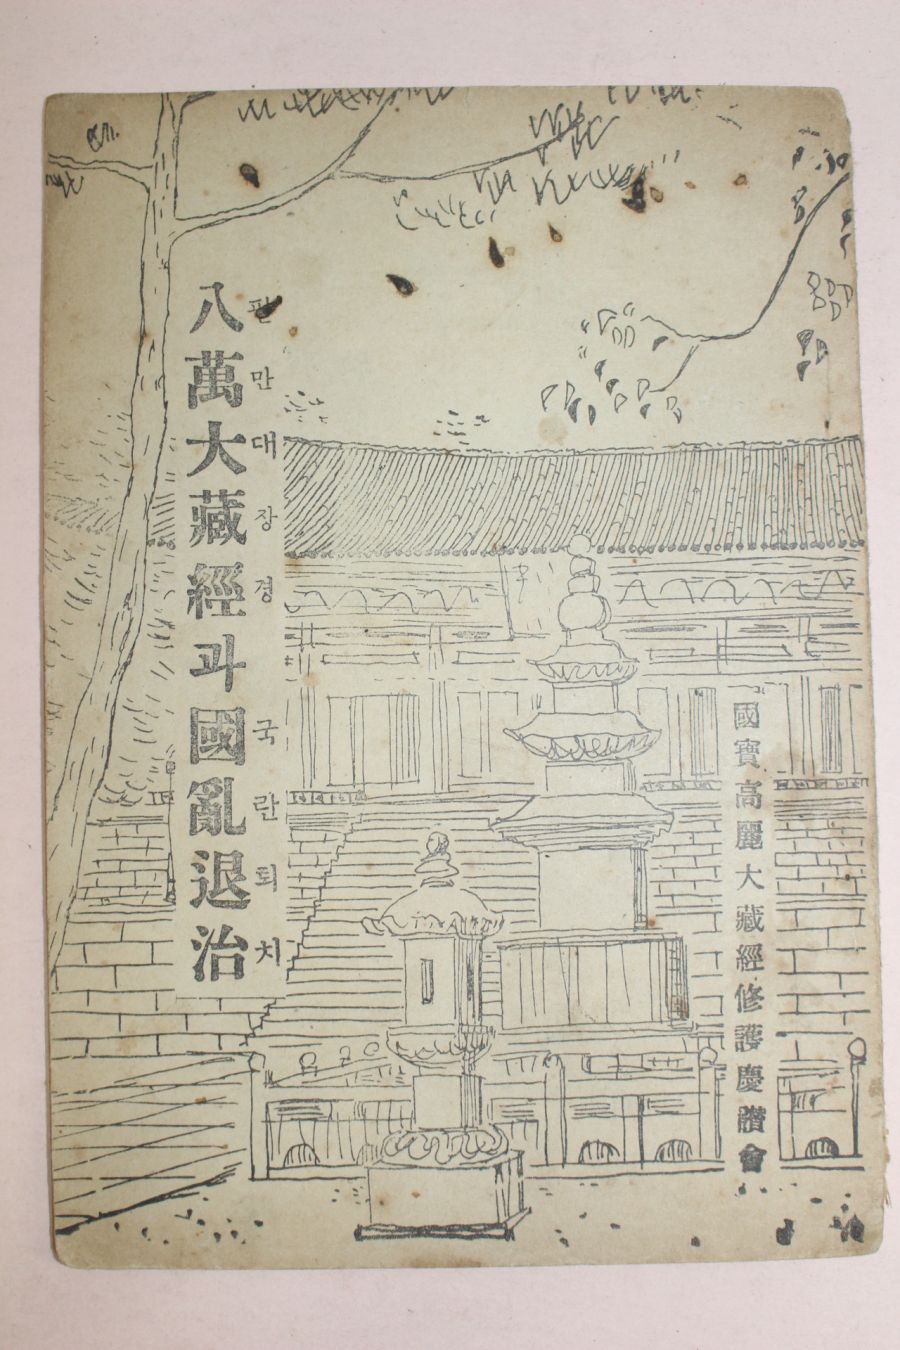 八萬大藏經과國亂退治
판만대장경 국란퇴치
國寶高麗大藏經修護慶讚會